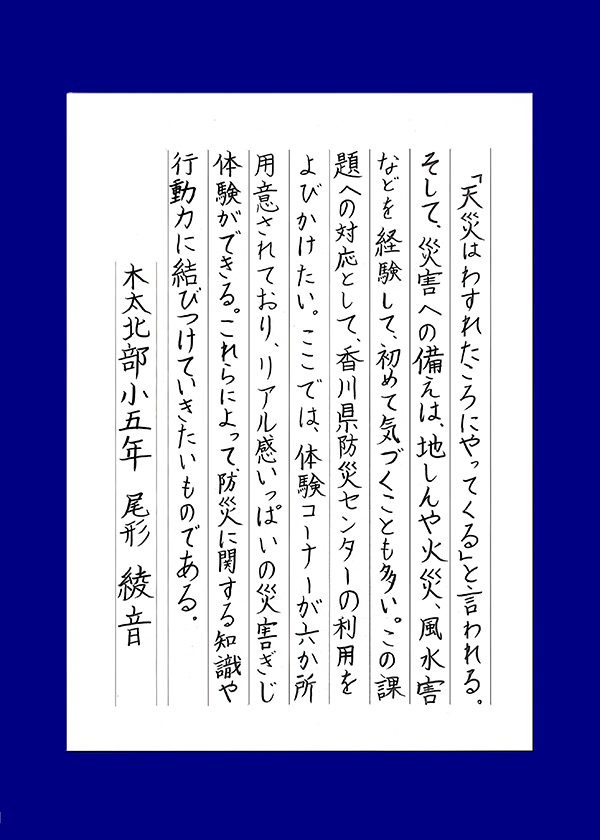 「天災はわすれたころにやってくる」と言われる。
そして、災害への備えは、地しんや火災、風水害
などを経験して、初めて気づくことも多い。この課
題への対応として、香川県防災センターの利用を
よびかけたい。ここでは、体験コーナーが六か所
用意されており、リアル感いっぱいの災害ぎじ
体験ができる。これらによって、防災に関する知識や
行動力に結びつけていきたいものである。
木太北部小五年 尾形 綾音